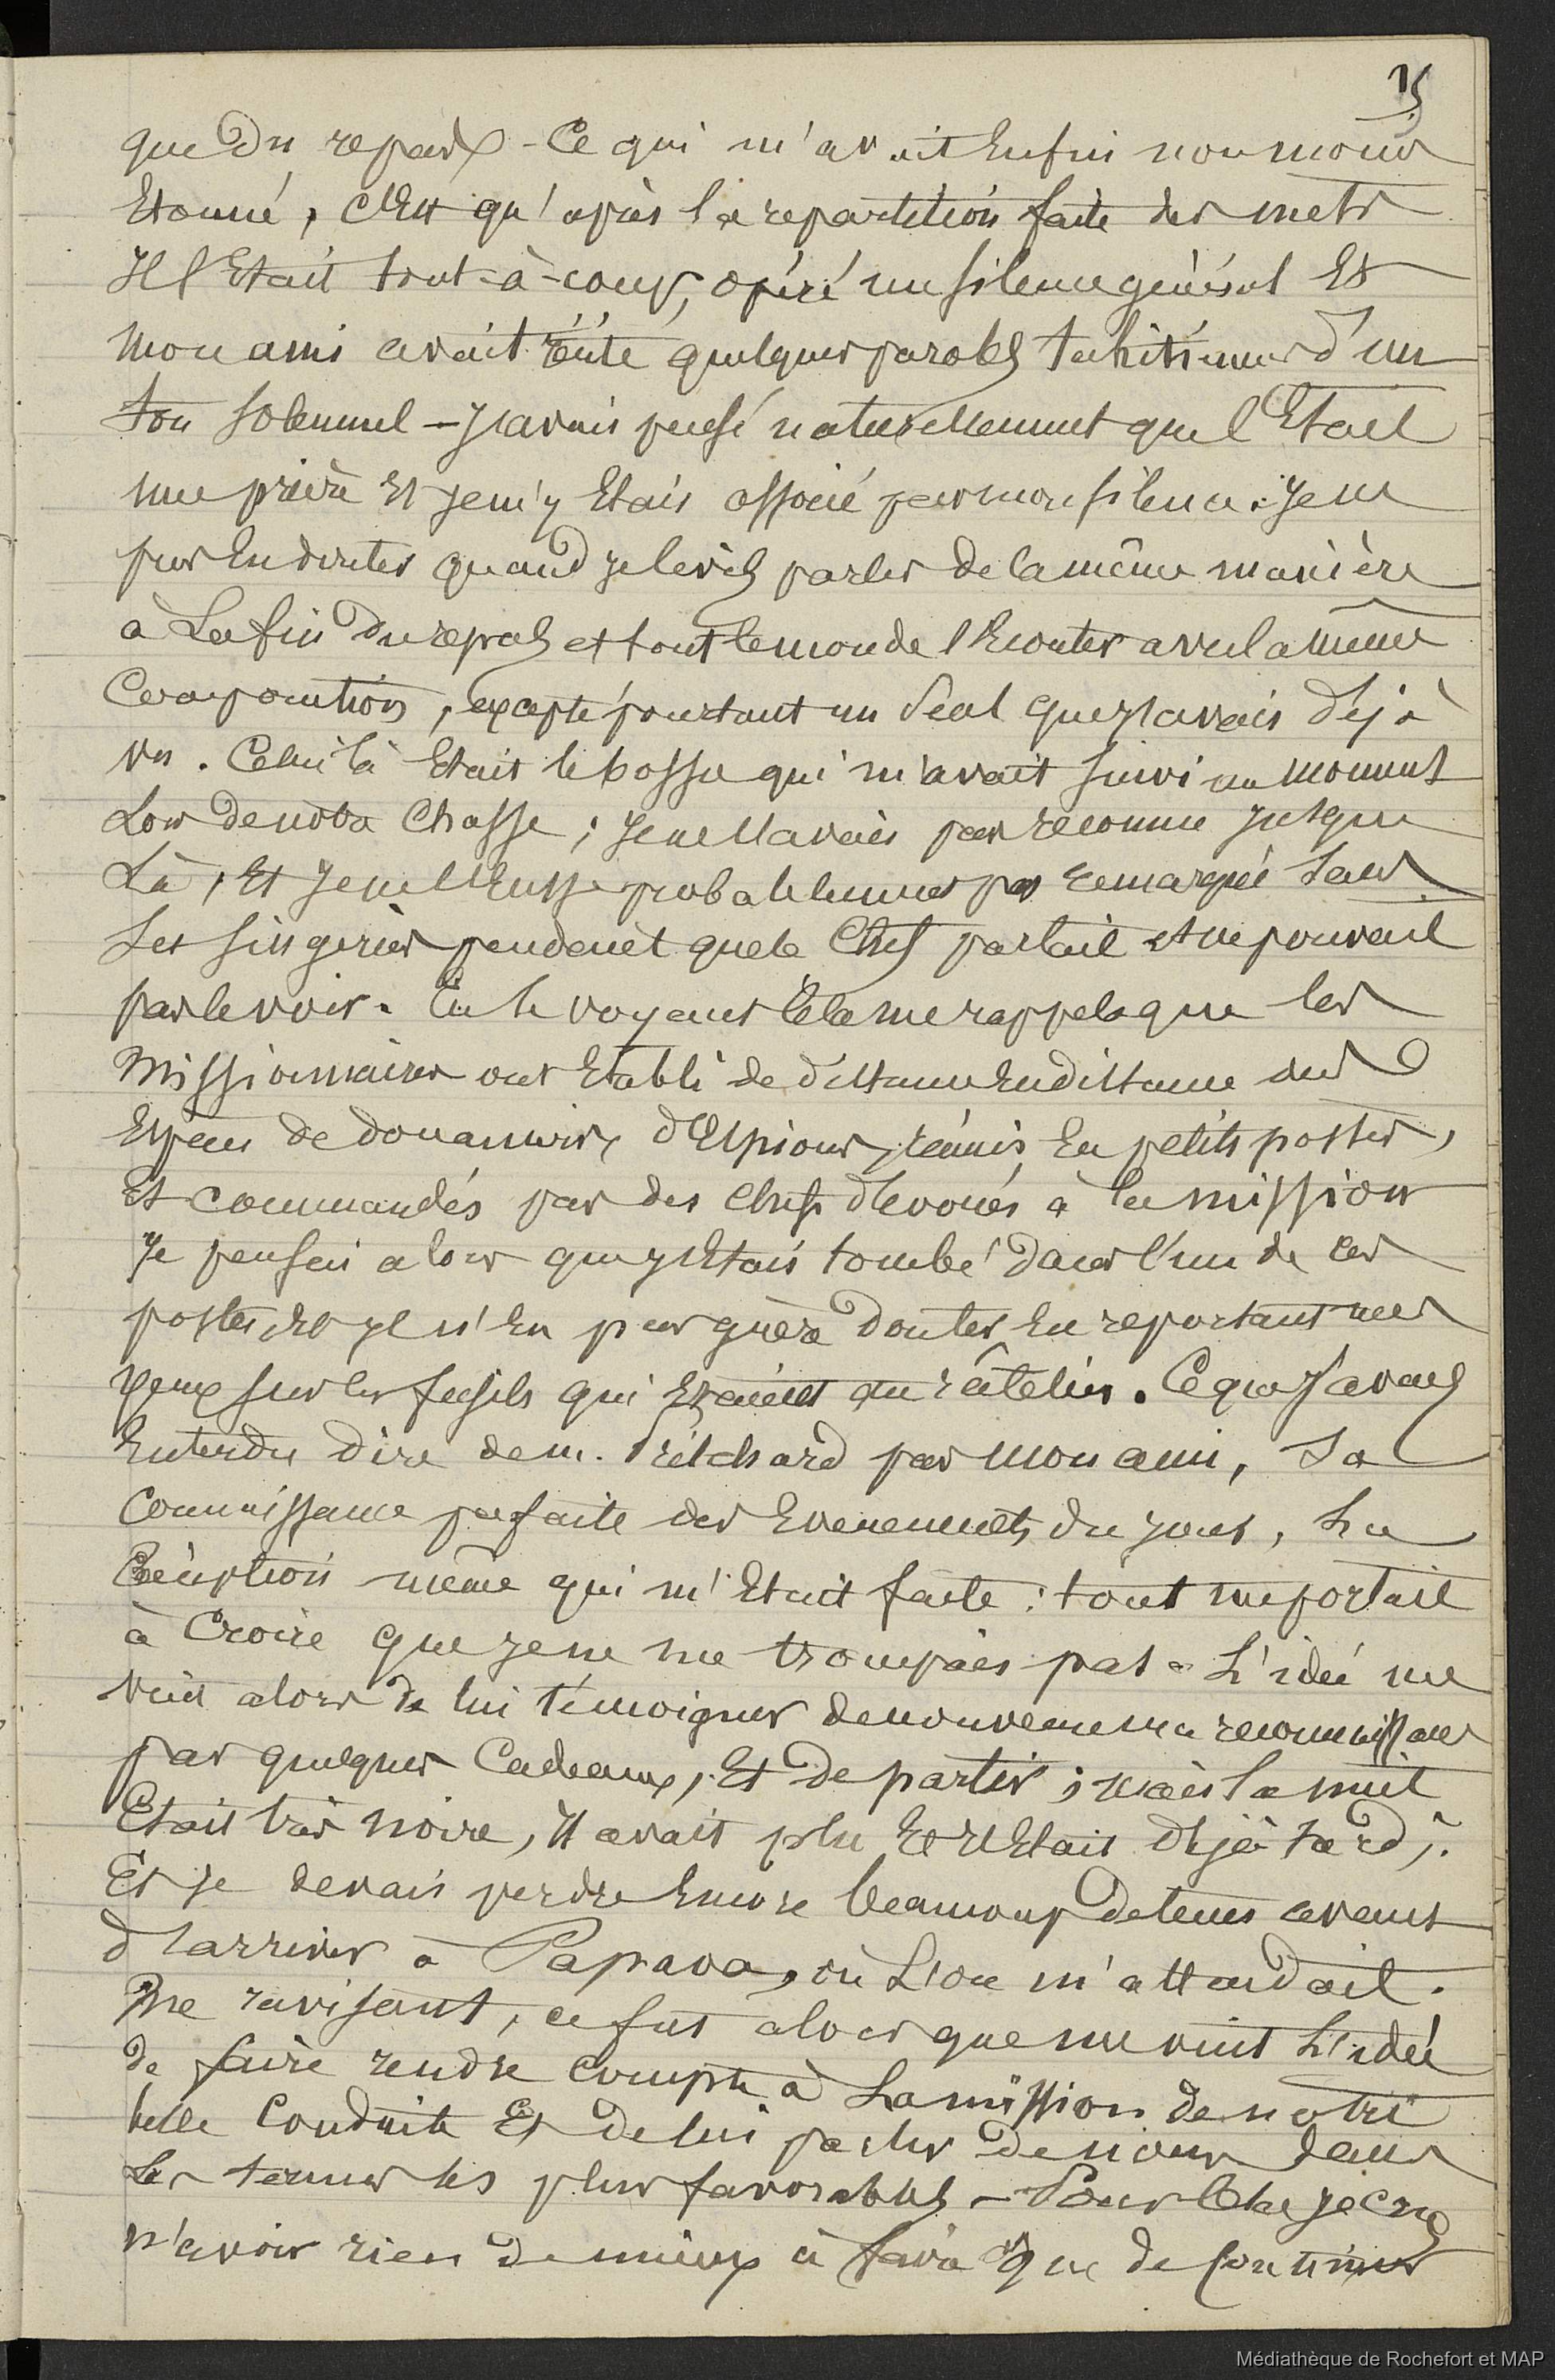 15
que du repas - Ce qui m'avait Enfin non moins
Etonné, c'Est qu'après la repartition faite des mets
Il s'Etait tout-à-coup, opéré un silence général Et
mon ami avait récité quelques paroles tahitiennes d'un
ton solennel - J'avais pensé naturellement que c'Etait
une prière Et je m'y Etais associé par mon silence. Je ne
pus En douter quand je le vis parler de la même manière
à La fin du repas et tout le monde l'Ecouter avec la même
Componction, excepté pourtant un seul que j'avais déjà
vu. Celui là Etait le bossu qui m'avait suivi un moment
Lors de notre Chasse ; je ne l'avais pas reconnu jusque
Là, Et je ne l'Eusse probablement pas remarqué sans
Ses singeries pendant que le Chef parlait et ne pouvait
pas le voir. En le voyant Cela me rappela que les
Missionnaires ont Etabli de distance En distance des
Espèces de douaniers, d'Espions, réunis En petits postes,
Et commandés par des chefs dévoués à la mission
Je pensai alors que j'Etais tombé dans l'un de ces
postes, Et je n'En pus guère douter En reportant mes
yeux sur les fusils qui Etaient au râtelier. Ce que J'avais
Entendu dire de m. Pritchard par mon ami, Sa
Connaissance parfaite des Evenements du jour, La
Réception même qui m'Etait faite : tout me portait
à Croire que je ne me trompais pas - L'idée me
vint alors de lui témoigner de nouveau ma reconnaissance
par quelques Cadeaux, Et de partir ; mais la nuit
Etait très noire, Il avait plu Et Il Etait déjà tard ;
Et je devais perdre Encore beaucoup de temps avant
d'arriver à Papara, où L'on m'attendait.
Me ravisant, ce fut alors que me vint L'idée
de faire rendre compte à La mission de notre
belle Conduite Et de lui parler de nous dans
Les termes les plus favorables - Pour Cela je crus
n'avoir rien de mieux à faire que de continuer
Médiathèque de Rochefort et MAP